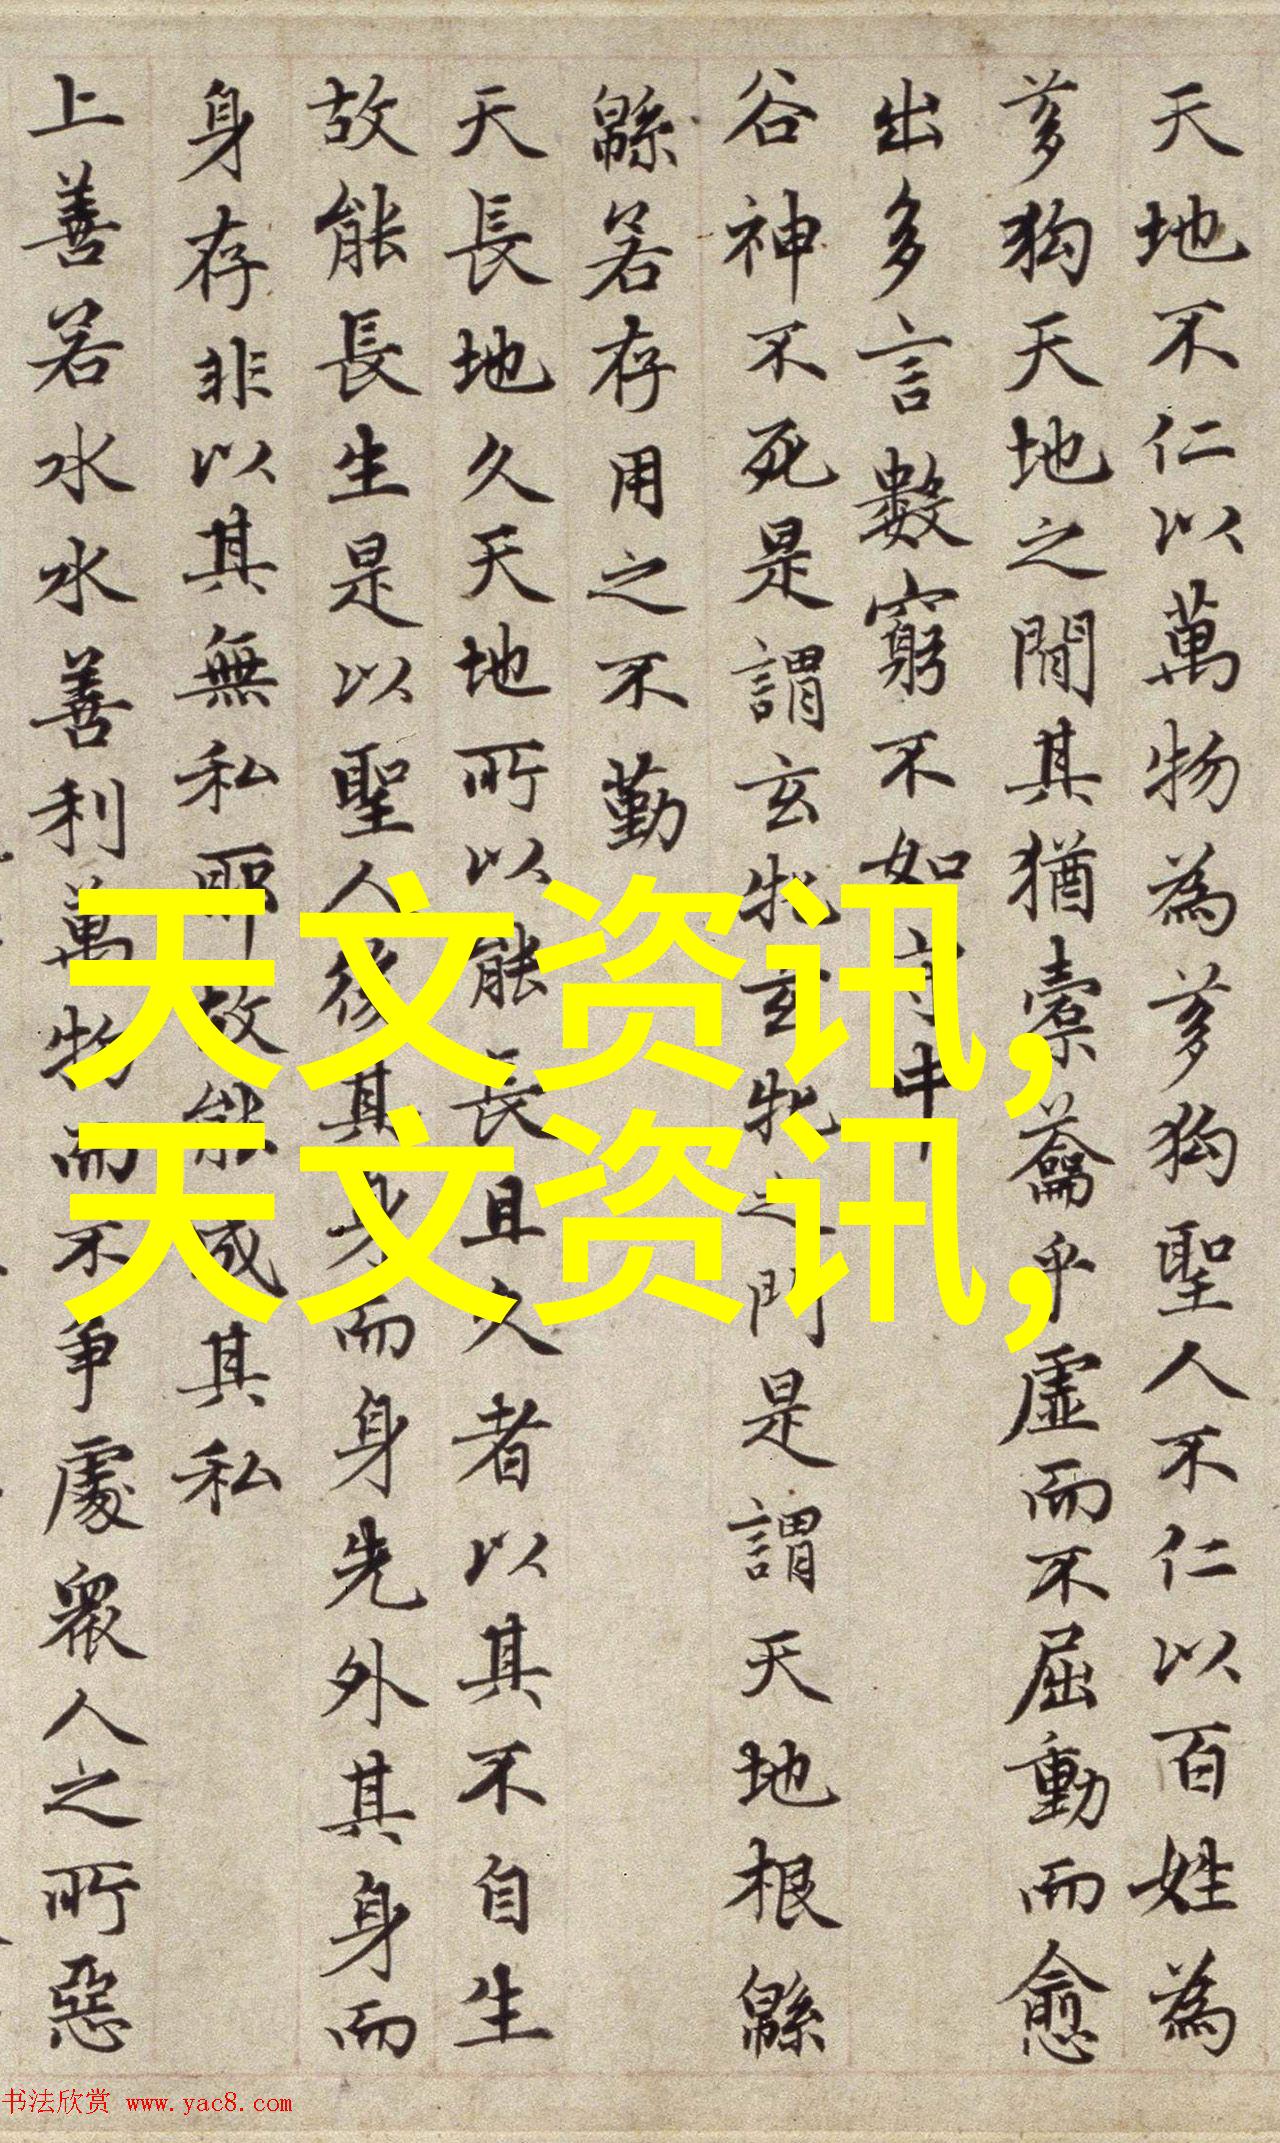 天地不仁以萬物為芻狗聖人不仁以百姓為
芻狗天地之間其猶橐籥乎虛而不屈動而愈
出多言數窮不如守中
谷神不死是謂玄牝玄牝之門是謂天地根緜
緜若存用之不勤
天長地久天地所以能長且久者以其不自生
故能長生是以聖人後其身而身先外其身而
身存非以其無私耶故能成其私
上善若水水善利萬物而不爭處眾人之所惡
天文资讯,
天文资讯,
书法欣赏 www.yac8.com